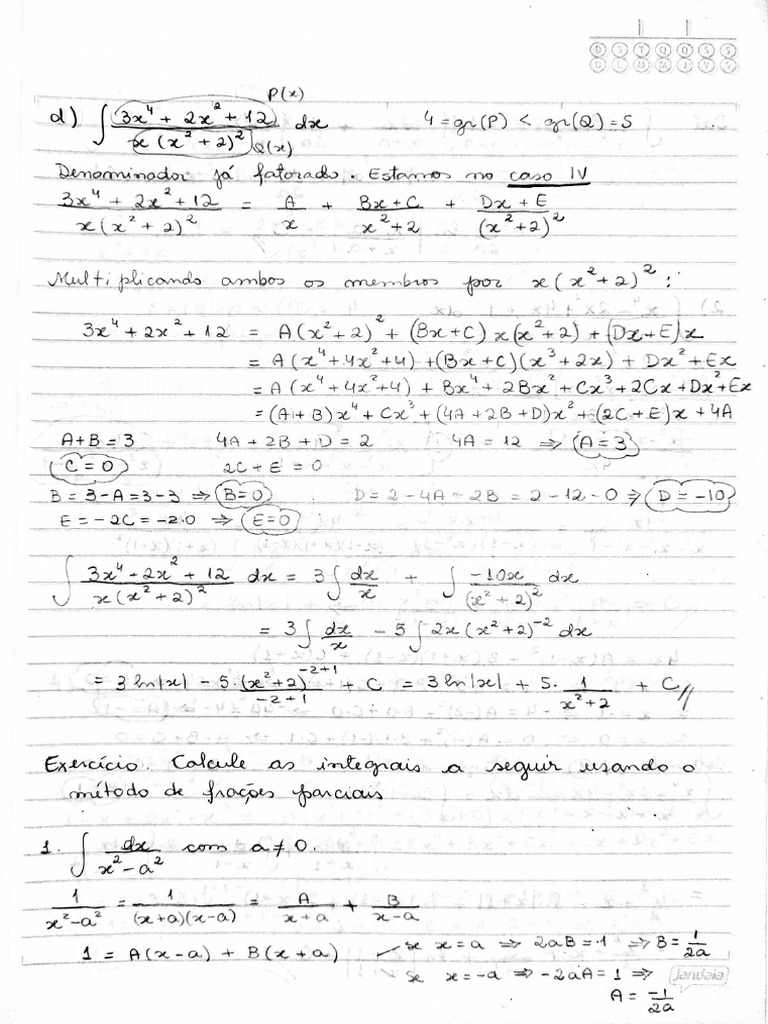 D S T Q Q S S
D L M M J V S
P(x)
d) ∫ 3x⁴ + 2x² + 12 / x(x² + 2)² dx    4 = gr(P) < gr(Q) = 5
Q(x)
Denominador já fatorado. Estamos no caso IV
3x⁴ + 2x² + 12 / x(x² + 2)² = A/x + Bx+C / x²+2 + Dx + E / (x²+2)²
Multiplicando ambos os membros por x(x²+2)²:
3x⁴ + 2x² + 12 = A(x²+2)² + (Bx+C)x(x²+2) + (Dx+E)x
= A(x⁴+4x²+4) + (Bx+C)(x³+2x) + Dx² + Ex
= A(x⁴+4x²+4) + Bx⁴ + 2Bx² + Cx³ + 2Cx + Dx² + Ex
= (A+B)x⁴ + Cx³ + (4A+2B+D)x² + (2C+E)x + 4A
A+B = 3    4A + 2B + D = 2    4A = 12 ⇒ A=3
C=0    2C+E = 0
B = 3-A = 3-3 ⇒ B=0    D = 2-4A-2B = 2-12-0 ⇒ D=-10
E = -2C = -2.0 ⇒ E=0
∫ 3x⁴ + 2x² + 12 / x(x²+2)² dx = 3∫ dx/x + ∫ -10x / (x²+2)² dx
= 3∫ dx/x - 5∫ 2x(x²+2)⁻² dx
= 3 ln|x| - 5. (x²+2)⁻²⁺¹ / -2+1 + C = 3 ln|x| + 5. 1 / x²+2 + C//
Exercício. Calcule as integrais a seguir usando o
método de frações parciais
1. ∫ dx / x²-a² com a≠0.
1 / x²-a² = 1 / (x+a)(x-a) = A / x+a + B / x-a
1 = A(x-a) + B(x+a)    se x=a ⇒ 2aB=1 ⇒ B = 1/2a
se x=-a ⇒ -2aA = 1 ⇒
jandaia
A = -1/2a